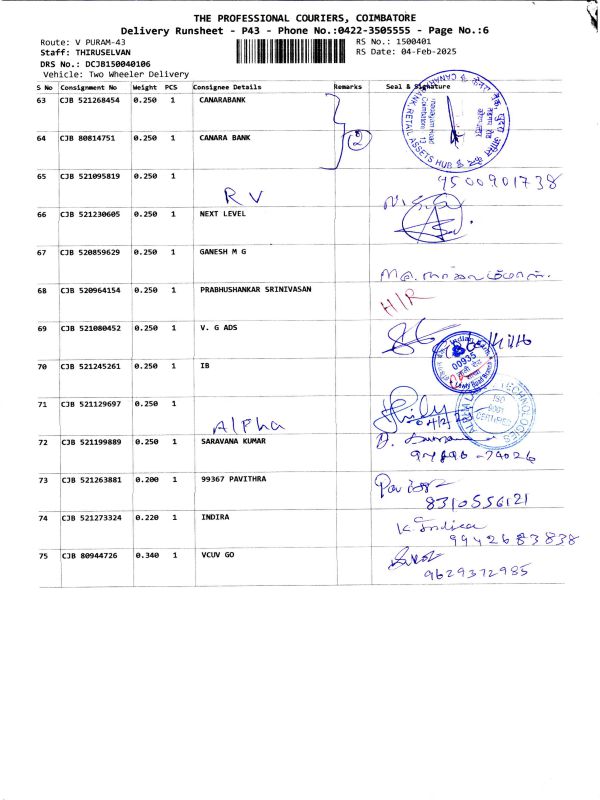 THE PROFESSIONAL COURIERS, COIMBATORE
Delivery Runsheet - P43 - Phone No.:0422-3505555 - Page No.:6
Route: V PURAM-43 RS No.: 1500401
Staff: THIRUSELVAN RS Date: 04-Feb-2025
DRS No.: DCJB150040106
Vehicle: Two Wheeler Delivery
S No Consignment No Weight PCS Consignee Details Remarks Seal & Signature
63 CJB 521268454 0.250 1 CANARABANK
64 CJB 80814751 0.250 1 CANARA BANK 2
CANARA BANK, RETAIL ASSETS HUB
65 CJB 521095819 0.250 1 RV 9500901738
66 CJB 521230605 0.250 1 NEXT LEVEL
67 CJB 520859629 0.250 1 GANESH M G
68 CJB 520964154 0.250 1 PRABHUSHANKAR SRINIVASAN H/R
69 CJB 521080452 0.250 1 V. G ADS
70 CJB 521245261 0.250 1 IB
Indian Bank
00935
71 CJB 521129697 0.250 1 Alpha
TECHNOLOGIES
ISO
9001
72 CJB 521199889 0.250 1 SARAVANA KUMAR
73 CJB 521263881 0.200 1 99367 PAVITHRA 8310556121
74 CJB 521273324 0.220 1 INDIRA K. Indira 9942683838
75 CJB 80944726 0.340 1 VCUV GO 9629372985